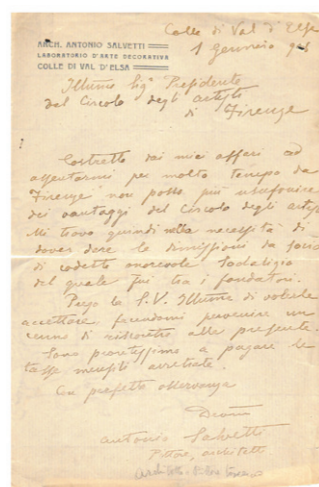 Colle di Val d'Elsa
1 Gennaio
ARCH. ANTONIO SALVETTI
LABORATORIO D'ARTE DECORATIVA
COLLE DI VAL D'ELSA
Illmo Sigr Presidente
del Circolo degli artisti
di Firenze
Costretto dai miei affari ad
assentarmi per molto tempo da
Firenze non posso più usufruire
dei vantaggi del Circolo degli artisti
Mi trovo quindi nella necessità di
dover dare le dimissioni da socio
di codesto onorevole Sodalizio
del quale fui tra i fondatori.
Prego la S.V. Illma di volerle
accettare, facendomi pervenire un
cenno di riscontro alla presente.
Sono prontissimo a pagare le
tasse mensili arretrate.
Con perfetta osservanza
Antonio Salvetti
Pittore, architetto